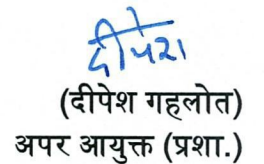 दीपेश
(दीपेश गहलोत)
अपर आयुक्त (प्रशा.)